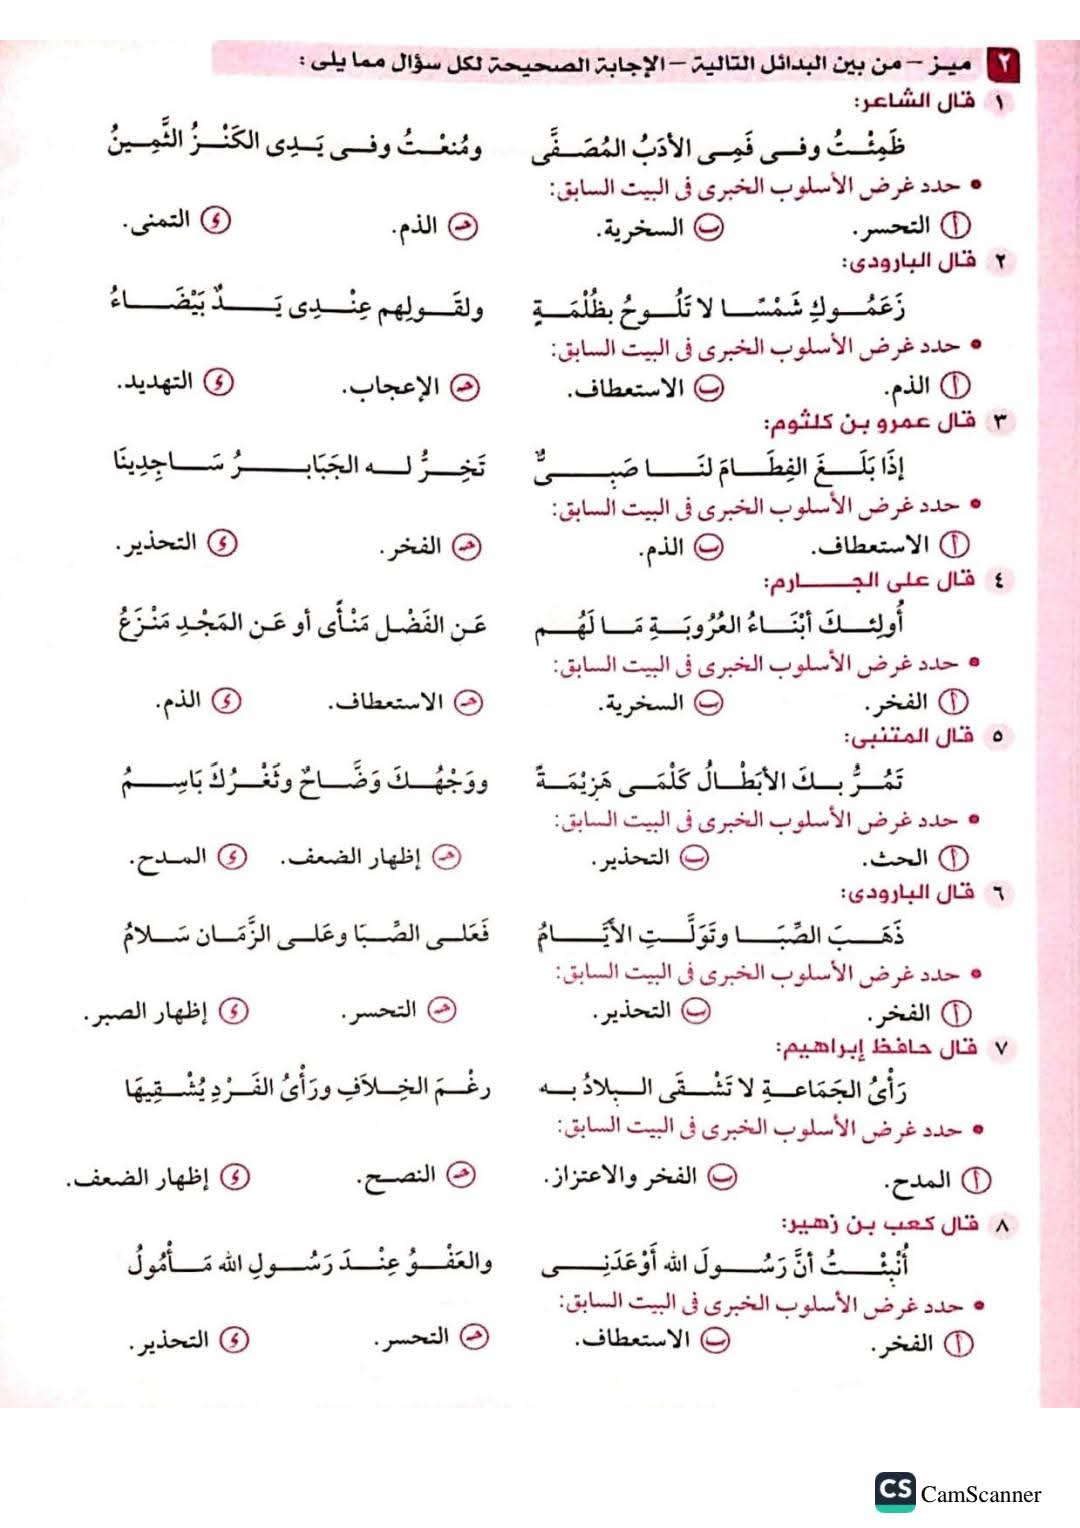 ٢ ميز – من بين البدائل التالية – الإجابة الصحيحة لكل سؤال مما يلى :
١ قال الشاعر:
ظَمِئْتُ وفى فَمِى الأدَبُ المُصَفَّى ومُنعْتُ وفى يَدِى الكَنْزُ الثَّمِينُ
• حدد غرض الأسلوب الخبرى فى البيت السابق:
أ التحسر. ب السخرية. جـ الذم. د التمنى.
٢ قال البارودى:
زَعَمُوكِ شَمْسًا لا تَلُوحُ بظُلْمَةٍ ولقَولِهم عِنْدِى يَدٌ بَيْضَاءُ
• حدد غرض الأسلوب الخبرى فى البيت السابق:
أ الذم. ب الاستعطاف. جـ الإعجاب. د التهديد.
٣ قال عمرو بن كلثوم:
إذَا بَلَغَ الفِطَامَ لنَا صَبِىٌّ تَخِرُّ له الجَبَابرُ سَاجدِينَا
• حدد غرض الأسلوب الخبرى فى البيت السابق:
أ الاستعطاف. ب الذم. جـ الفخر. د التحذير.
٤ قال على الجارم:
أُولئِكَ أبْنَاءُ العُرُوبَةِ مَا لَهُم عَنِ الفَضْلِ مَنْأًى أو عَنِ المَجْدِ مَنْزَعُ
• حدد غرض الأسلوب الخبرى فى البيت السابق:
أ الفخر. ب السخرية. جـ الاستعطاف. د الذم.
٥ قال المتنبى:
تَمُرُّ بكَ الأبْطَالُ كَلْمَى هَزِيْمَةً ووَجْهُكَ وَضَّاحٌ وثَغْرُكَ بَاسِمُ
• حدد غرض الأسلوب الخبرى فى البيت السابق:
أ الحث. ب التحذير. جـ إظهار الضعف. د المدح.
٦ قال البارودى:
ذَهَبَ الصِّبَا وتَوَلَّتِ الأيَّامُ فَعَلى الصِّبَا وعَلى الزَّمَانِ سَلامُ
• حدد غرض الأسلوب الخبرى فى البيت السابق:
أ الفخر. ب التحذير. جـ التحسر. د إظهار الصبر.
٧ قال حافظ إبراهيم:
رَأىُ الجَمَاعةِ لا تَشْقَى البِلادُ به رغْمَ الخِلافِ ورَأىُ الفَرْدِ يُشْقِيهَا
• حدد غرض الأسلوب الخبرى فى البيت السابق:
أ المدح. ب الفخر والاعتزاز. جـ النصح. د إظهار الضعف.
٨ قال كعب بن زهير:
أُنْبِئْتُ أنَّ رَسُولَ الله أوْعَدَنِى والعَفْوُ عِنْدَ رَسُولِ الله مَأْمُولُ
• حدد غرض الأسلوب الخبرى فى البيت السابق:
أ الفخر. ب الاستعطاف. جـ التحسر. د التحذير.
CS CamScanner